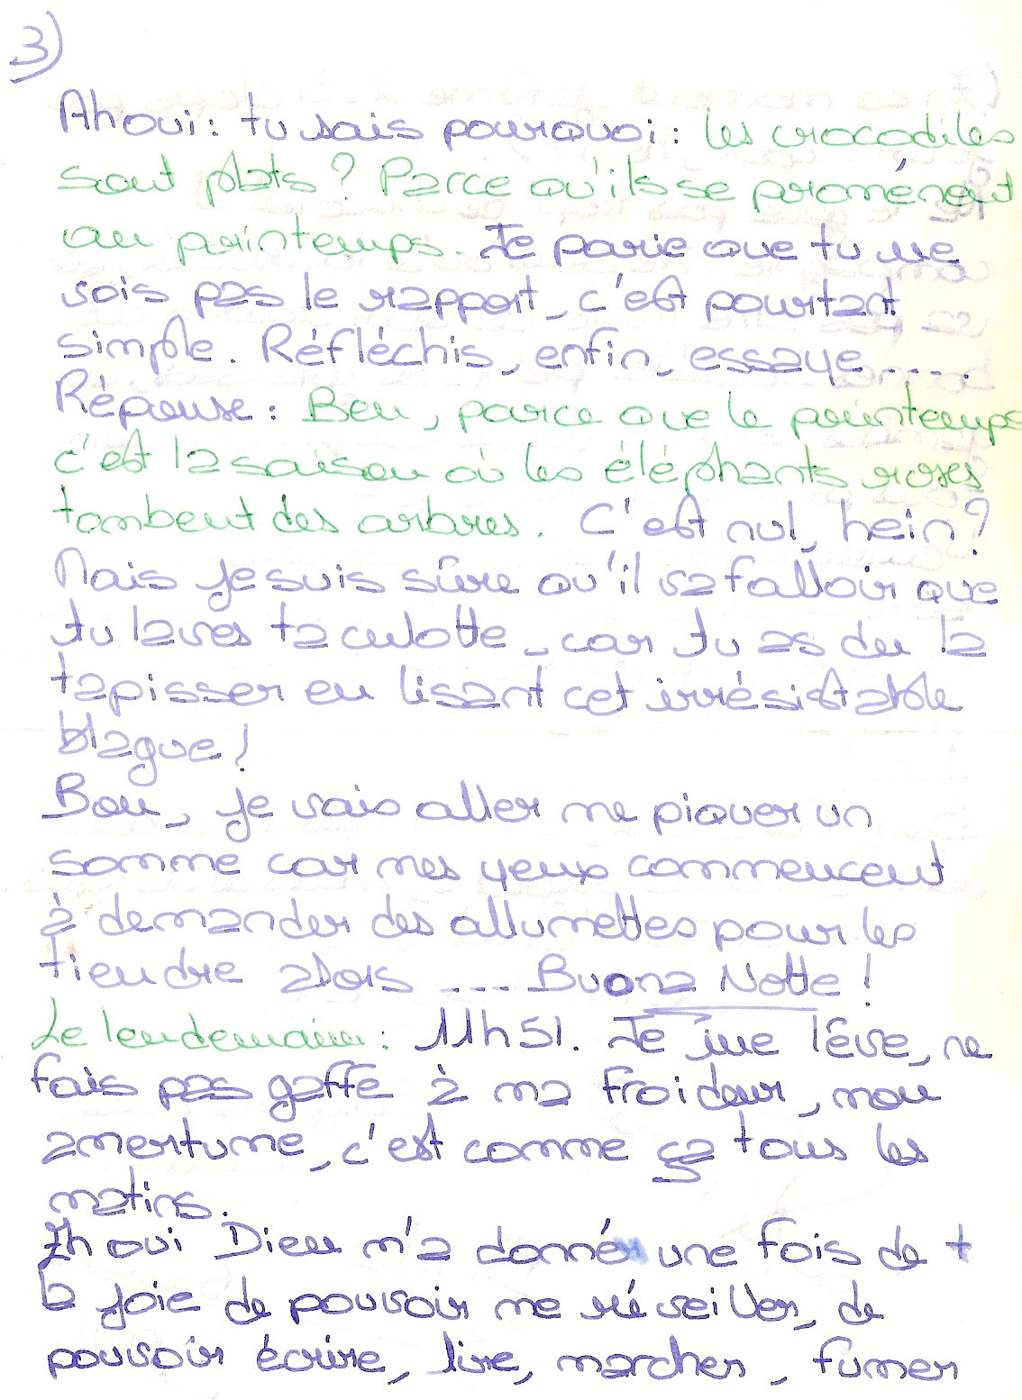 3)
Ah oui : tu sais pourquoi : les crocodiles
sont plats ? Parce qu'ils se proménent
au printemps. Je parie que tu ne
vois pas le rapport, c'est pourtant
simple. Réfléchis, enfin, essaye ....
Réponse : Ben, parce que le printemps
c'est la saison où les éléphants roses
tombent des arbres. C'est nul, hein ?
Mais je suis sûre qu'il va falloir que
tu laves ta culotte, car tu as du la
tapisser en lisant cet irrésistable
blague !
Bon, je vais aller me piquer un
somme car mes yeux commencent
à demander des allumettes pour les
tiendre alors .... Buona Notte !
Le lendemain : 11h51. Je me lève, ne
fais pas gaffe à ma froideur, mon
amertume, c'est comme ça tous les
matins.
Eh oui Dieu m'a donné une fois de +
la joie de pouvoir me réveiller, de
pouvoir écrire, lire, marcher, fumer